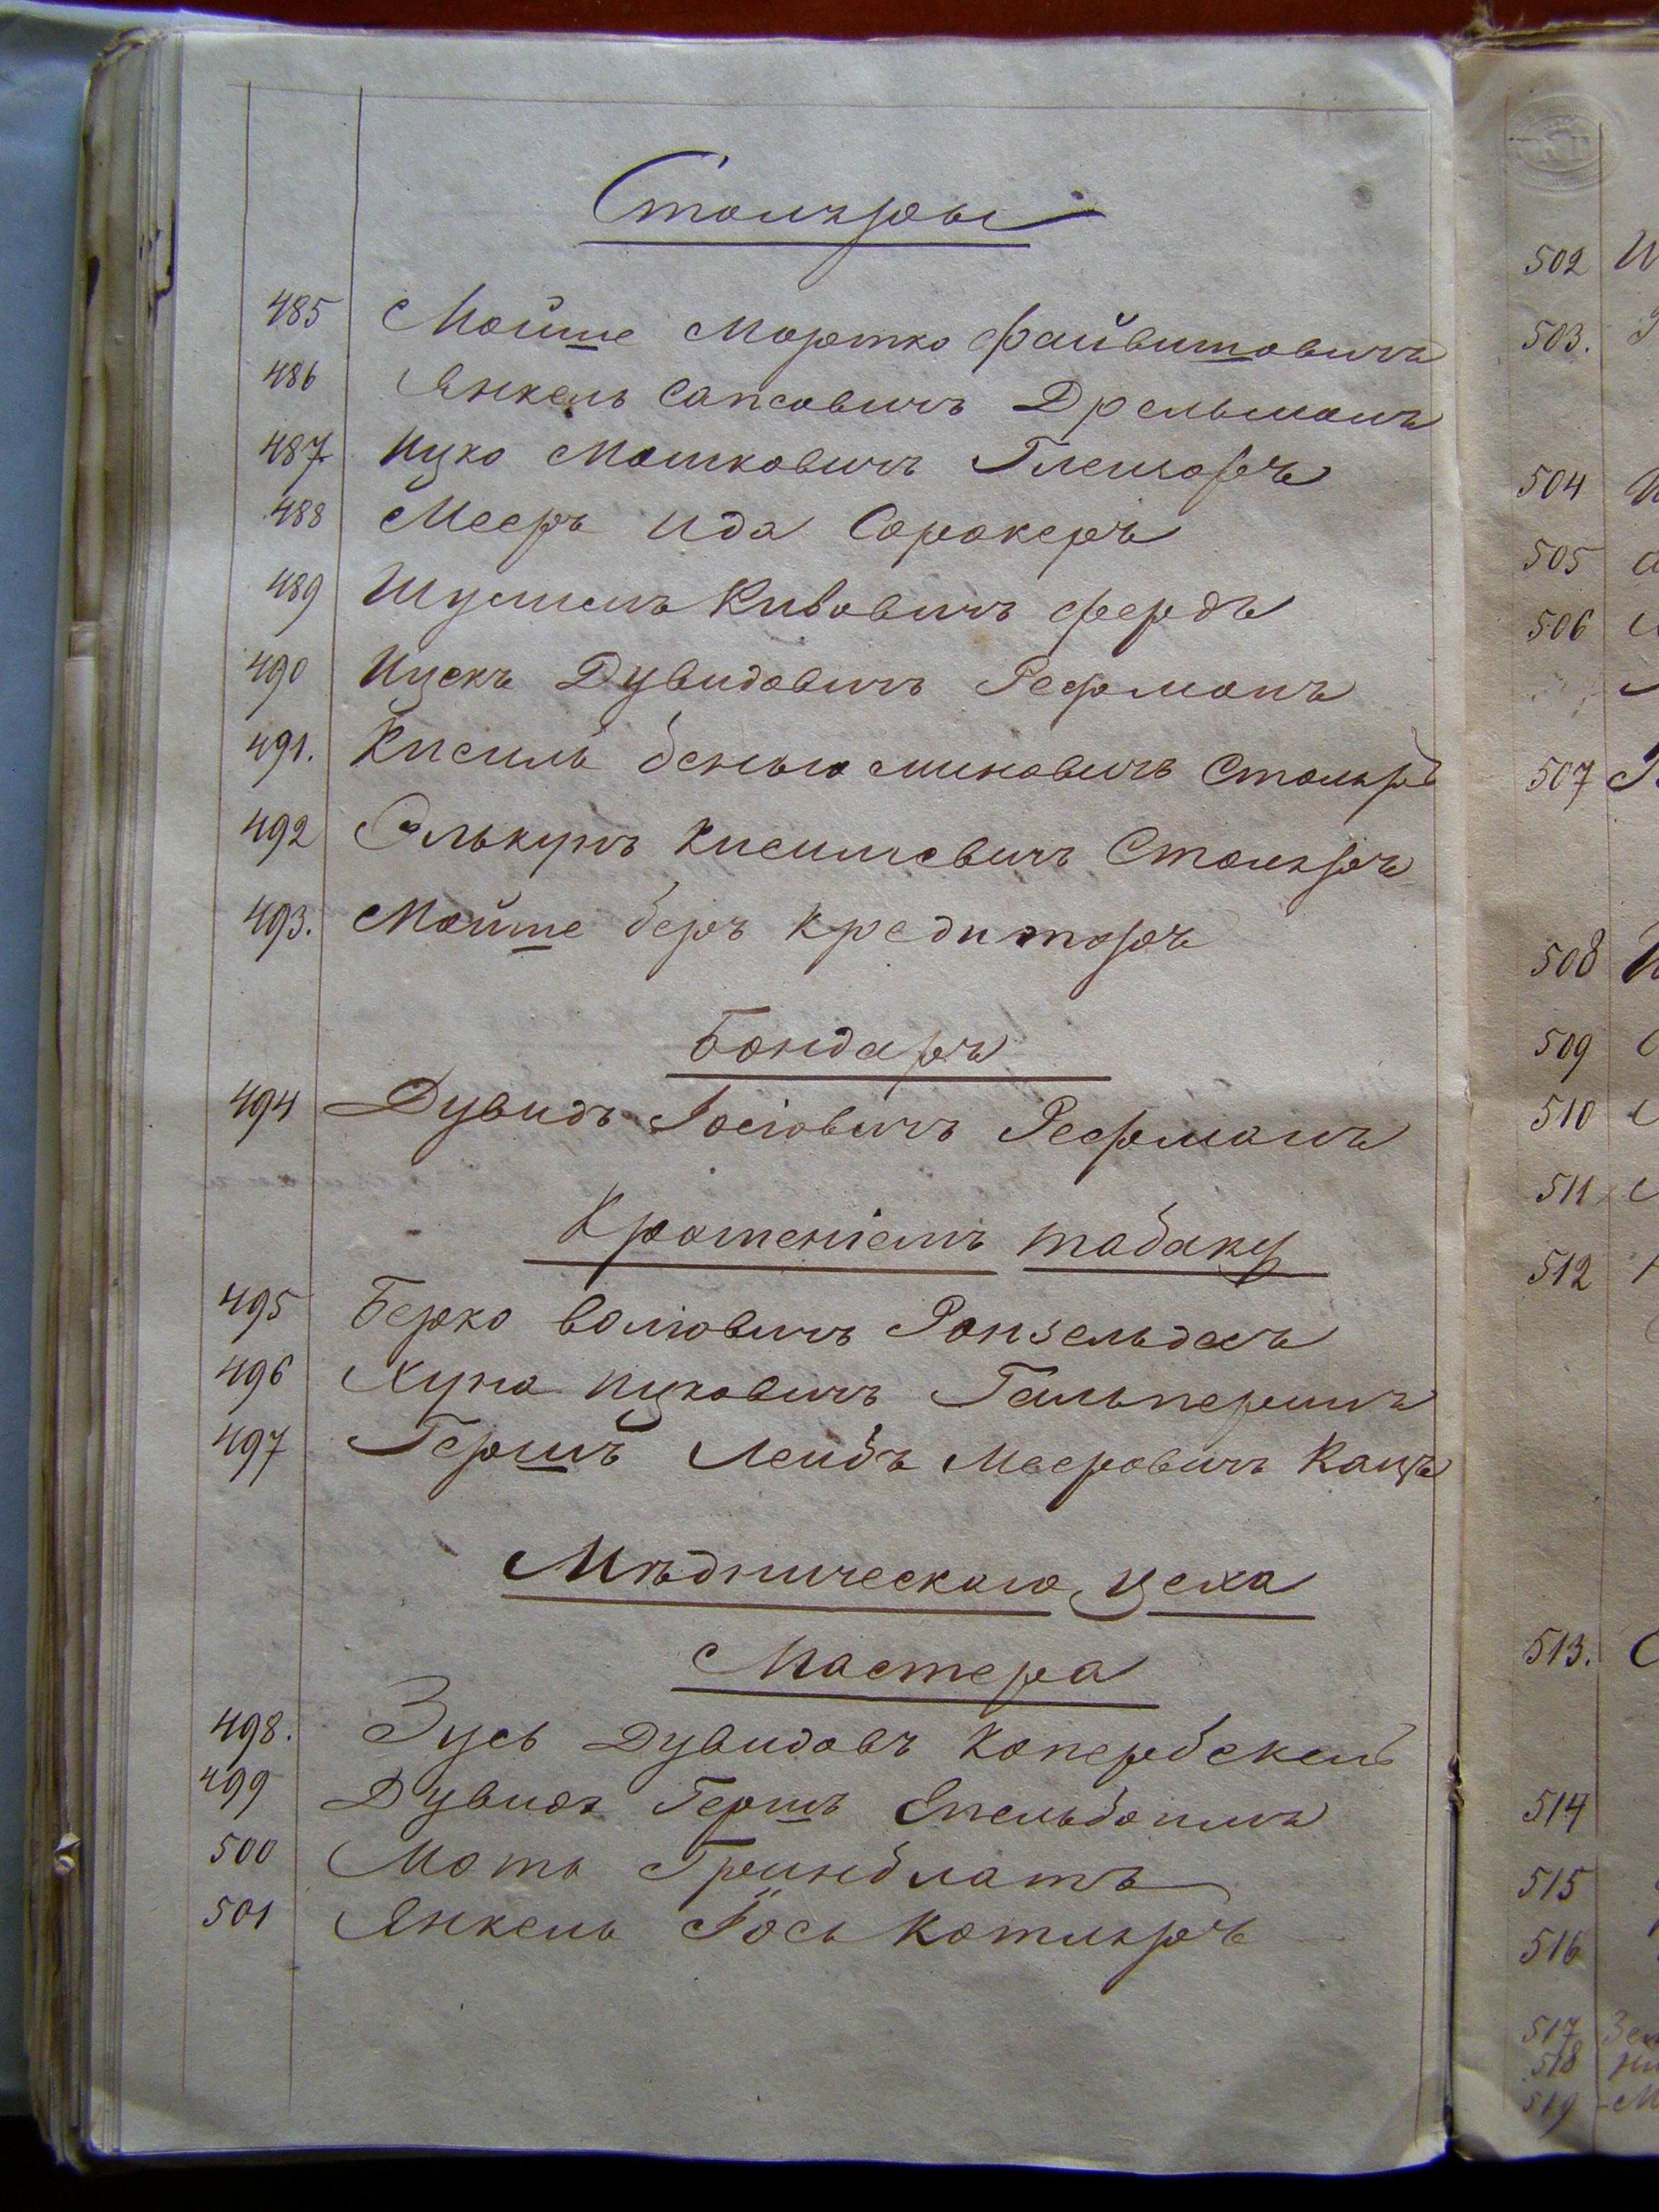 Столяры
485 Мойше Мортко Файвишовичъ
486 Янкель Сапсовичъ Дрельманъ
487 Ицко Мошковичъ Глейзоръ
488 Мееръ Ида Сорокеръ
489 Шулимъ Кивовичъ Фердъ
490 Ицекъ Дувидовичъ Рефманъ
491. Кисиль беньюминовичъ Столяръ
492 Элькунъ Кисилевичъ Столяръ
493. Мойше беръ Кредиторъ
Бондаръ
494 Дувидъ Іосіовичъ Рефманъ
Крошеніемъ табаку
495 Берко Воліовичъ
496 Хуна ицковичъ Гальперинъ
497 Гершъ Лейбъ Мееровичъ Кацъ
Мѣдническаго цеха
Мастера
498. Зусь Дувидовъ
499 Дувидъ Гершъ Епельбоимъ
500 Моть Гринблатъ
501 Янкель Іось Котляръ
502
503.
504
505
506
507
508
509
510
511
512
513.
514
515
516
517
518
519